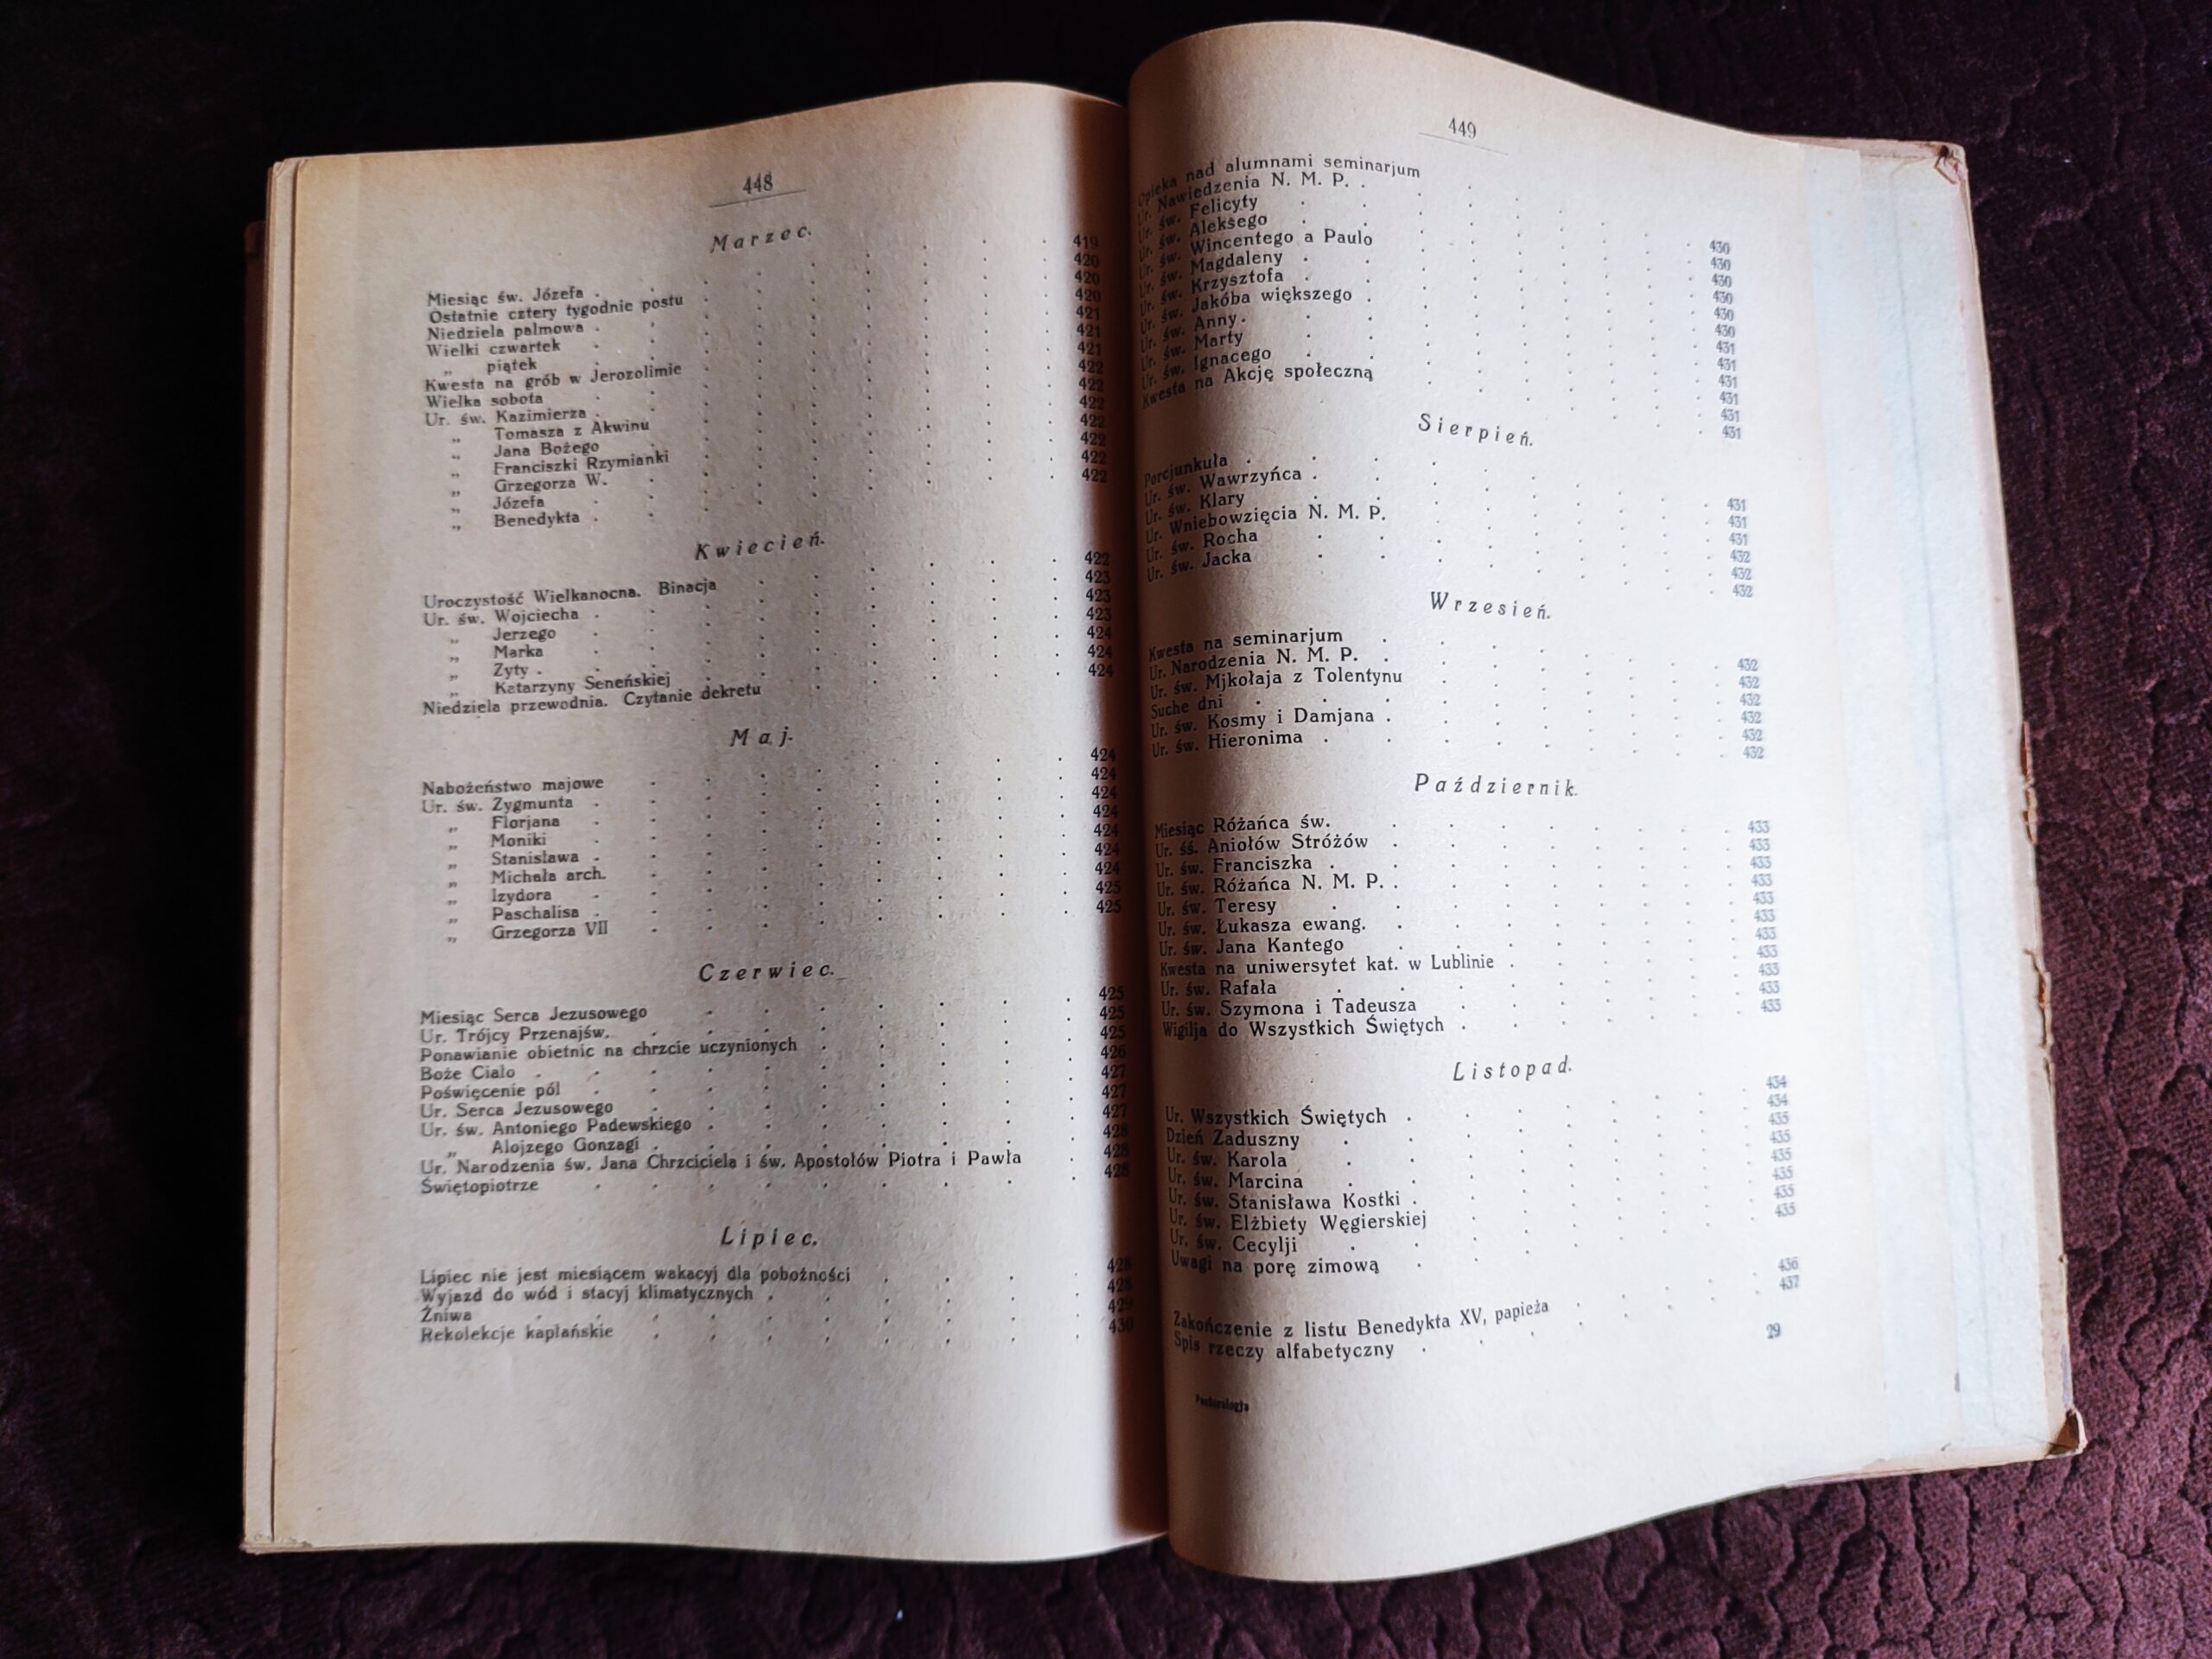 448
Marzec.
Miesiąc św. Józefa . 419
Ostatnie cztery tygodnie postu 420
Niedziela palmowa . 420
Wielki czwartek 420
„ piątek 421
Kwesta na grób w Jerozolimie 421
Wielka sobota 421
Ur. św. Kazimierza . 422
„ Tomasza z Akwinu 422
„ Jana Bożego 422
„ Franciszki Rzymianki 422
„ Grzegorza W. 422
„ Józefa 422
„ Benedykta . 422
Kwiecień.
Uroczystość Wielkanocna. Binacja 422
Ur. św. Wojciecha . 423
„ Jerzego 423
„ Marka 423
„ Zyty . 424
„ Katarzyny Seneńskiej 424
Niedziela przewodnia. Czytanie dekretu 424
Maj.
Nabożeństwo majowe 424
Ur. św. Zygmunta . 424
„ Florjana 424
„ Moniki 424
„ Stanisława . 424
„ Michała arch. 424
„ Izydora 424
„ Paschalisa . 425
„ Grzegorza VII 425
Czerwiec.
Miesiąc Serca Jezusowego 425
Ur. Trójcy Przenajśw. 425
Ponawianie obietnic na chrzcie uczynionych . 425
Boże Ciało . 426
Poświęcenie pól 427
Ur. Serca Jezusowego 427
Ur. św. Antoniego Padewskiego . 427
„ Alojzego Gonzagi . 428
Ur. Narodzenia św. Jana Chrzciciela i św. Apostołów Piotra i Pawła 428
Świętopiotrze 428
Lipiec.
Lipiec nie jest miesiącem wakacyj dla pobożności 428
Wyjazd do wód i stacyj klimatycznych . 428
Żniwa 429
Rekolekcje kapłańskie 430
449
Opieka nad alumnami seminarjum 430
Ur. Nawiedzenia N. M. P. . 430
Ur. św. Felicyty 430
Ur. św. Aleksego 430
Ur. św. Wincentego a Paulo 430
Ur. św. Magdaleny . 430
Ur. św. Krzysztofa . 431
Ur. św. Jakóba większego . 431
Ur. św. Anny . 431
Ur. św. Marty 431
Ur. św. Ignacego 431
Kwesta na Akcję społeczną 431
Sierpień.
Porcjunkuła . 431
Ur. św. Wawrzyńca . 431
Ur. św. Klary 431
Ur. Wniebowzięcia N. M. P. 432
Ur. św. Rocha 432
Ur. św. Jacka 432
Wrzesień.
Kwesta na seminarjum 432
Ur. Narodzenia N. M. P. 432
Ur. św. Mjkołaja z Tolentynu 432
Suche dni 432
Ur. św. Kosmy i Damjana . 432
Ur. św. Hieronima . 432
Październik.
Miesiąc Różańca św. 433
Ur. śś. Aniołów Stróżów 433
Ur. św. Franciszka . 433
Ur. św. Różańca N. M. P. . 433
Ur. św. Teresy 433
Ur. św. Łukasza ewang. 433
Ur. św. Jana Kantego 433
Kwesta na uniwersytet kat. w Lublinie . 433
Ur. św. Rafała 433
Ur. św. Szymona i Tadeusza 433
Wigilja do Wszystkich Świętych . 433
Listopad.
Ur. Wszystkich Świętych . 434
Dzień Zaduszny 434
Ur. św. Karola 435
Ur. św. Marcina 435
Ur. św. Stanisława Kostki . 435
Ur. św. Elżbiety Węgierskiej 435
Ur. św. Cecylji 435
Uwagi na porę zimową 435
Zakończenie z listu Benedykta XV, papieża 436
Spis rzeczy alfabetyczny 437
29